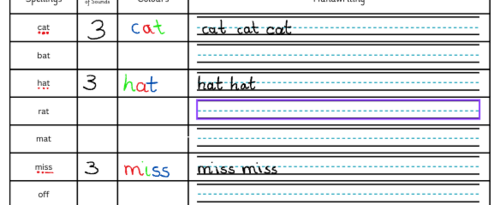 Spellings of Sounds Colours Handwriting
cat 3 cat cat cat cat
bat
hat 3 hat hat hat
rat
mat
miss 3 miss miss miss
off